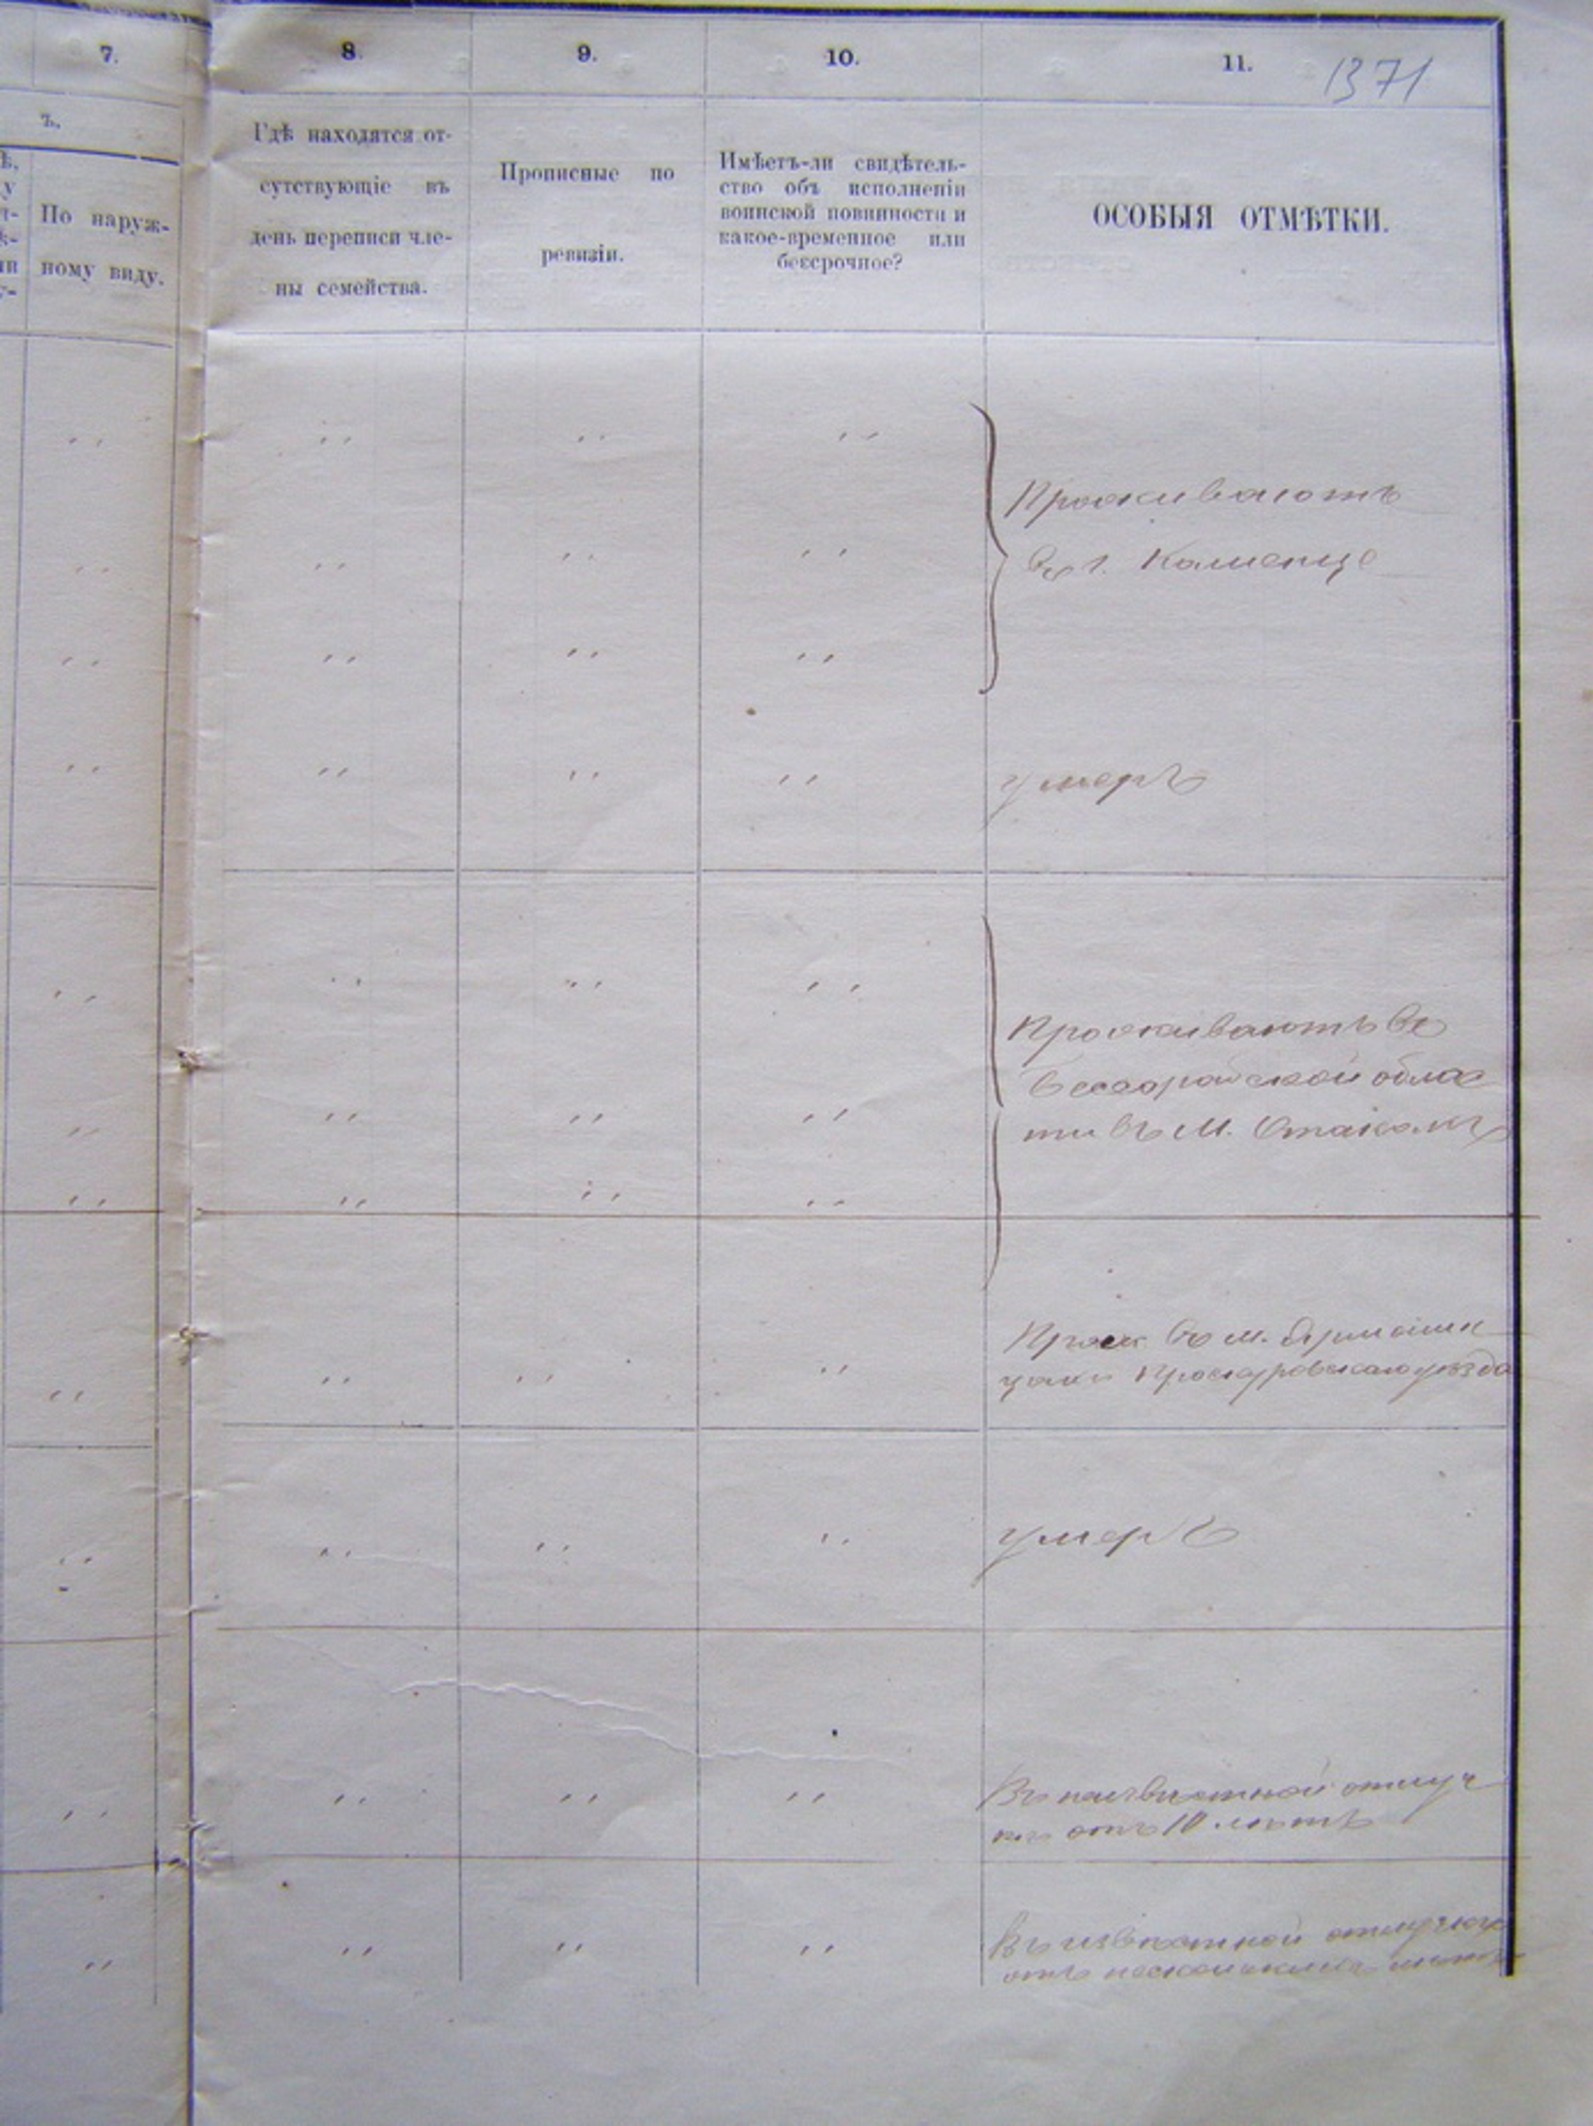 7.
8.
9.
10.
11.
1371
ъ.
По наруж-
ному виду.
Гдѣ находятся от-
сутствующіе въ
день переписи чле-
ны семейства.
Прописные по
ревизіи.
Имѣетъ-ли свидѣтель-
ство объ исполненіи
воинской повинности и
какое-временное или
бессрочное?
ОСОБЫЯ ОТМѢТКИ.
Проживаютъ
въ г. Каменце
умеръ
Проживаютъ въ
Бессарабской облас
ти въ М. Отакахъ
Прож въ м.
Проскуровскаго уѣзда
умеръ
Въ отлуч
кѣ отъ 10 лѣтъ
отлучкѣ
отъ лѣтъ